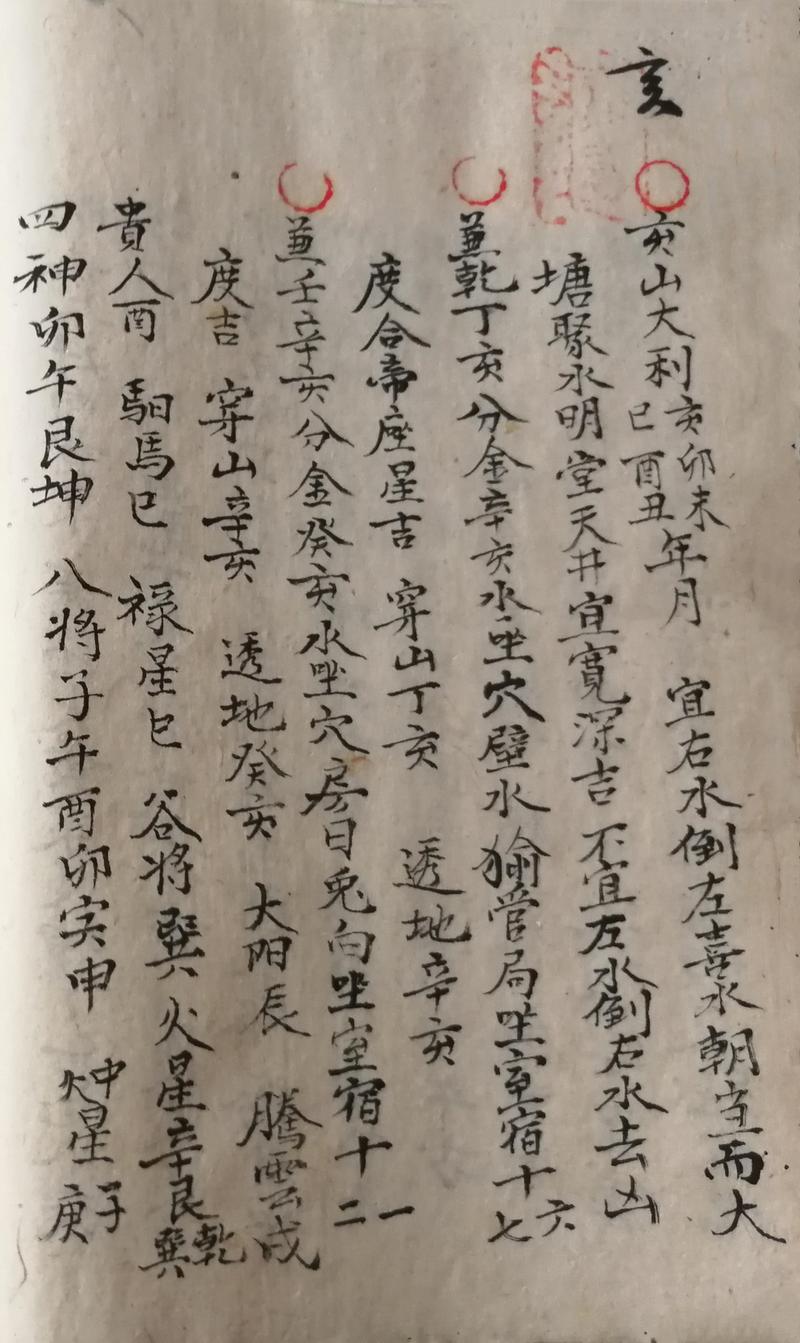 亥
亥山大利亥卯未巳酉丑年月 宜右水倒左喜水朝堂而大
塘聚水明堂天井宜寬深吉不宜左水倒右水去凶
兼乾丁亥分金辛亥水坐穴壁水㺄管局坐室宿十六七
度合帝座星吉 穿山丁亥 透地辛亥
兼壬辛亥分金癸亥水坐穴房日兔向坐室宿十一二
度吉 穿山辛亥 透地癸亥 大阳辰 騰雲戍
貴人酉 馹馬巳 禄星巳 谷将巽火星辛艮乾巽
四神卯午艮坤 八将子午酉卯寅申 中火星子庚